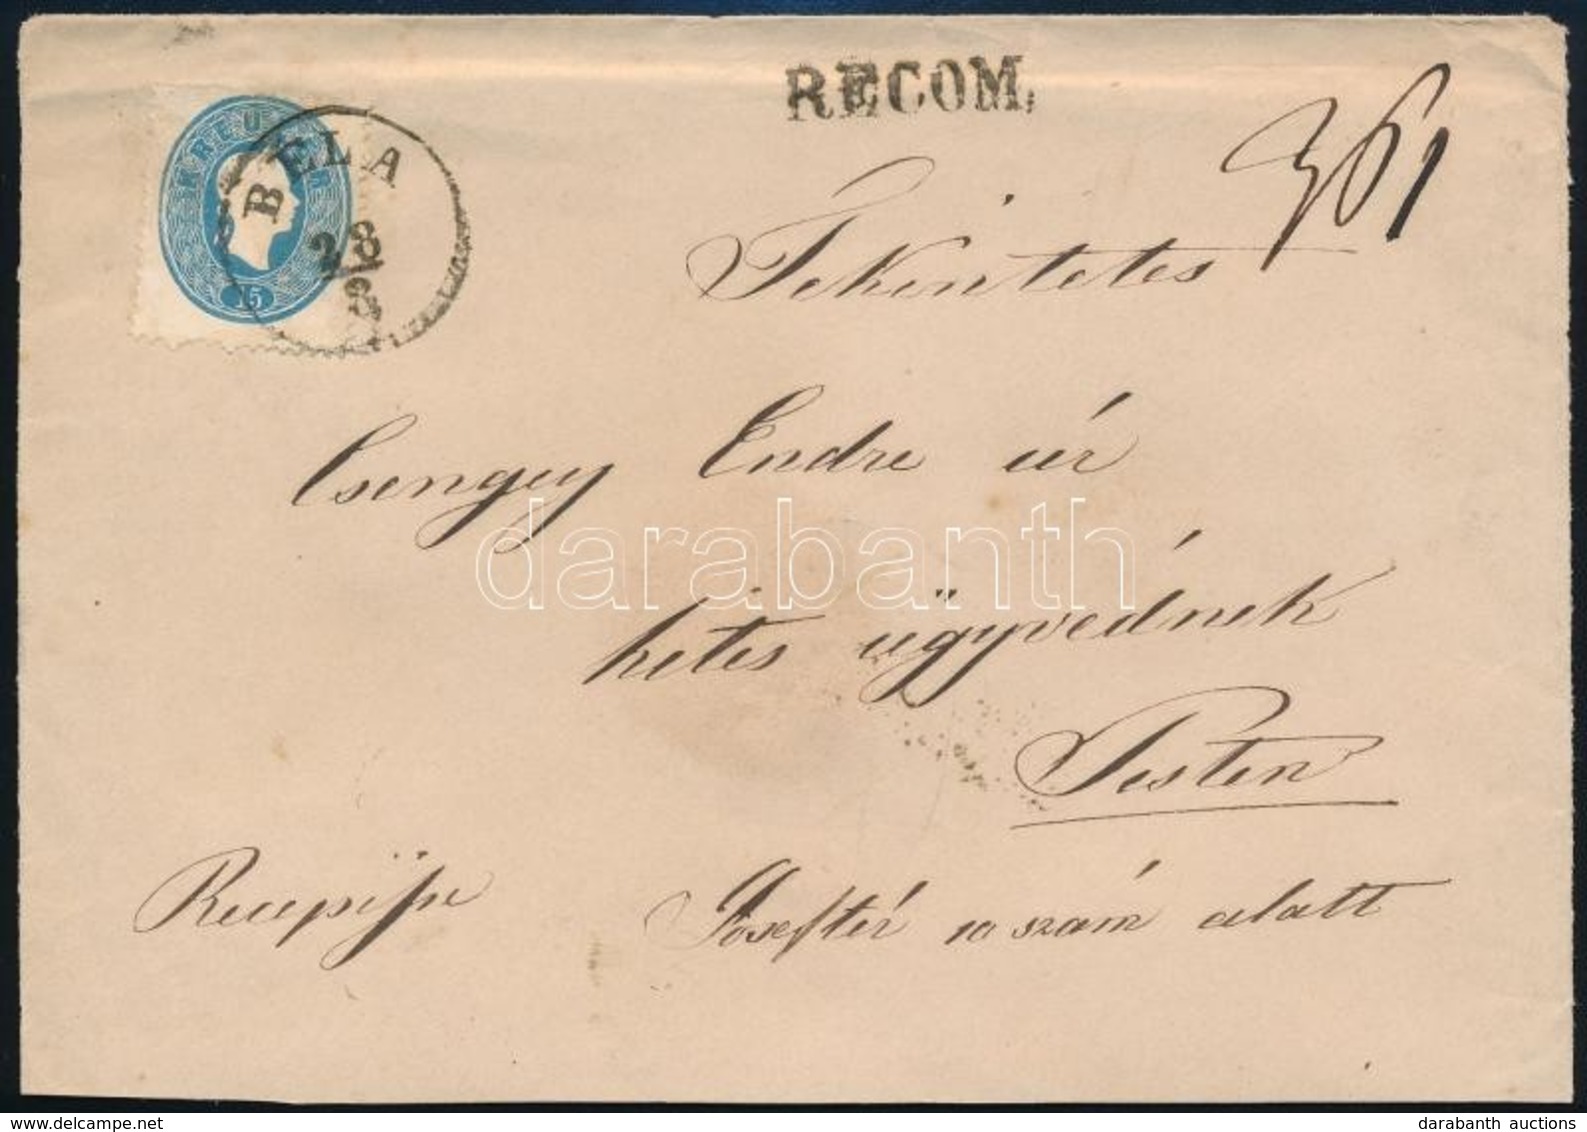 RECOM.
361
KREUZER
15
BELA
28
8
Tekintetes
Csengey Endre úr
hites ügyvédnek
Pesten
Recepisse
Joseftér 10 szám alatt
darabanth
www.delcampe.net
darabanth auctions